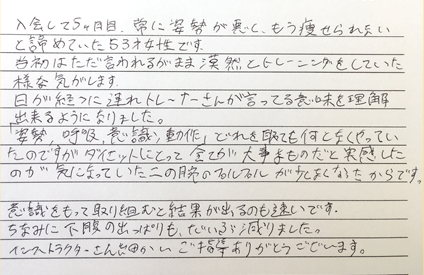 入会して5ヶ月目、常に姿勢が悪く、もう痩せられない
と諦めていた53才女性です。
当初はただ言われるがまま漠然とトレーニングをしていた
様な気がします。
日が経つに連れトレーナーさんが言ってる意味を理解
出来るようになりました。
「姿勢、呼吸、意識、動作」どれを取っても何となくやってい
たのですがダイエットにとって全てが大事なものだと実感した
のが気になっていた二の腕のプルプルが少なくなったからです。
意識をもって取り組むと結果が出るのも速いです。
ちなみに下腹の出っぱりも、だいぶ減りました。
インストラクターさん細かいご指導ありがとうございます。